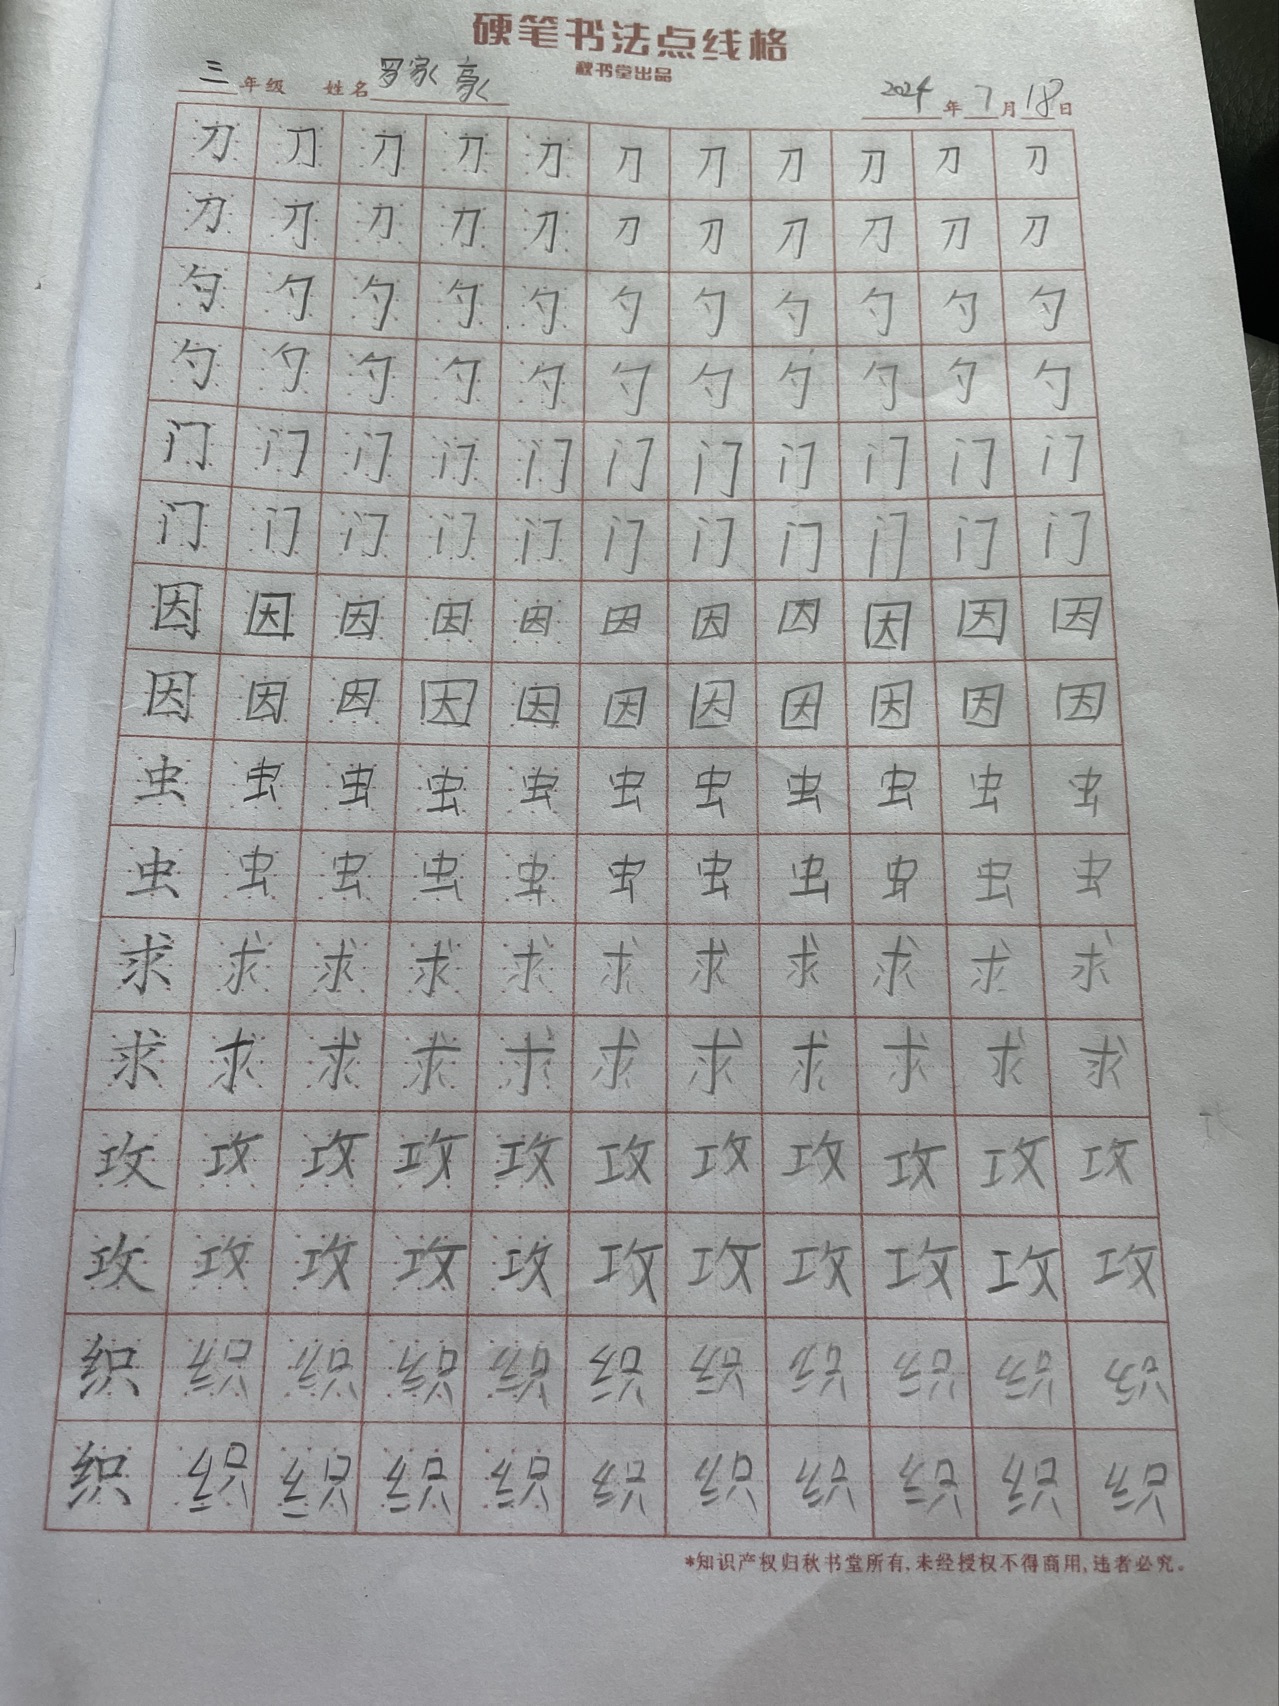 硬笔书法点线格
秋书堂出品
三年级 姓名罗家豪 2024年7月18日
刀刀刀刀刀刀刀刀刀刀刀
刀刀刀刀刀刀刀刀刀刀刀
勺勺勺勺勺勺勺勺勺勺勺
勺勺勺勺勺勺勺勺勺勺勺
门门门门门门门门门门门
门门门门门门门门门门门
因因因因因因因因因因因
因因因因因因因因因因因
虫虫虫虫虫虫虫虫虫虫虫
虫虫虫虫虫虫虫虫虫虫虫
求求求求求求求求求求求
求求求求求求求求求求求
攻攻攻攻攻攻攻攻攻攻攻
攻攻攻攻攻攻攻攻攻攻攻
织织织织织织织织织织织
织织织织织织织织织织织
*知识产权归秋书堂所有,未经授权不得商用,违者必究。